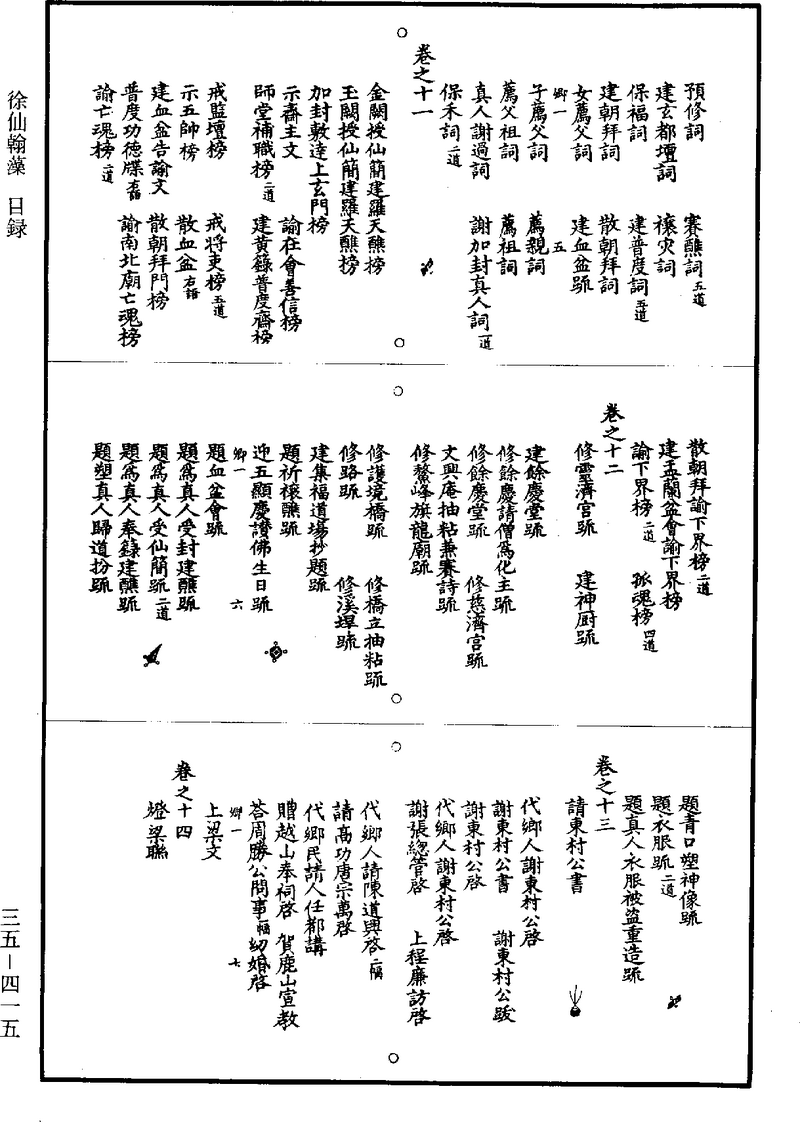 預修詞　賽醮詞五道
建玄都壇詞　禳灾詞
保福詞　建普度詞五道
建朝拜詞　散朝拜詞
女薦父詞　建血盆䟽
卿一　五
子薦父詞　薦親詞
薦父祖詞　薦祖詞
真人謝過詞　謝加封真人詞一道
保禾詞二道
卷之十一
金闕授仙簡建羅天醮榜
玉闕授仙簡建羅天醮榜
加封敷達上玄門榜
示齋主文　諭在會善信榜
師堂補職榜二道　建黄籙普度齋榜
戒監壇榜　戒將吏榜五道
示五帥榜　散血盆右語
建血盆告諭文　散朝拜門榜
普度功德牒右語　諭南北廟亡魂榜
諭亡魂榜二道
散朝拜諭下界榜二道
建盂蘭盆會諭下界榜
諭下界榜二道　孤魂榜四道
卷之十二
修靈濟宫䟽　建神厨䟽
建餘慶堂䟽
修餘慶請僧爲化主䟽
修餘慶堂䟽　修慈濟宫䟽
文興庵抽粘兼賽詩䟽
修鰲峰旗龍廟䟽
修護境橋䟽　修橋立抽粘䟽
修路䟽　修溪埕䟽
建集福道場抄題䟽
題祈禳醮䟽
迎五顯慶讚佛生日䟽
卿一　六
題血盆會䟽
題爲真人受封建醮䟽
題爲真人受仙簡䟽二道
題爲真人奉錄建醮䟽
題塑真人歸道扮䟽
題青口塑神像䟽
題衣服䟽二道
題真人衣服被盗重造䟽
卷之十三
請東村公書
代鄉人謝東村公啓
謝東村公書　謝東村公跋
謝東村公啓
代鄉人謝東村公啓
謝張總管啓　上程廉訪啓
代鄉人請陳道興啓二幅
請高功唐宗萬啓
代鄉民請人任都講
贈越山奉祠啓　賀鹿山宣教
荅周勝公問事一幅　幼婚啓
卿一　七
上梁文
卷之十四
燈梁聯
徐仙翰藻　目録
三五—四一五